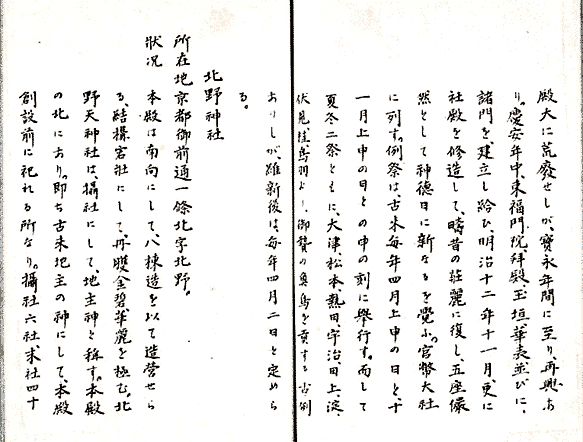 殿大に荒廢せしが、寶永年間に至り、再興あ
り。慶安年中、東福門院、拜殿、玉垣、華表並びに、
諸門を建立し給ひ、明治十二年十一月、更に
社殿を修造して、疇昔の莊麗に復し、五座儼
然として神德日に新なるを覺ふ。官幣大社
に列す。例祭は、古來每年四月上申の日と、十
一月上申の日との申の刻に擧行す。而して
夏冬二祭ともに、大津、松本、熱田、宇治、田上、淀、
伏見、桂、鳥羽より、御贄の魚鳥を貢する古例
ありしが、維新後は、每年四月二日と定めら
る。
北野神社
所在地 京都御前通一條北字北野。
狀况 本殿は南向にして、八棟造を以て造營せら
る、結構宏壯にして、丹雘金碧、華麗を極む。北
野天神社は、攝社にして、地主神と稱す。本殿
の北にあり。即ち古來地主の神にして、本殿
創設前に祀れる所なり。攝社六社末社四十